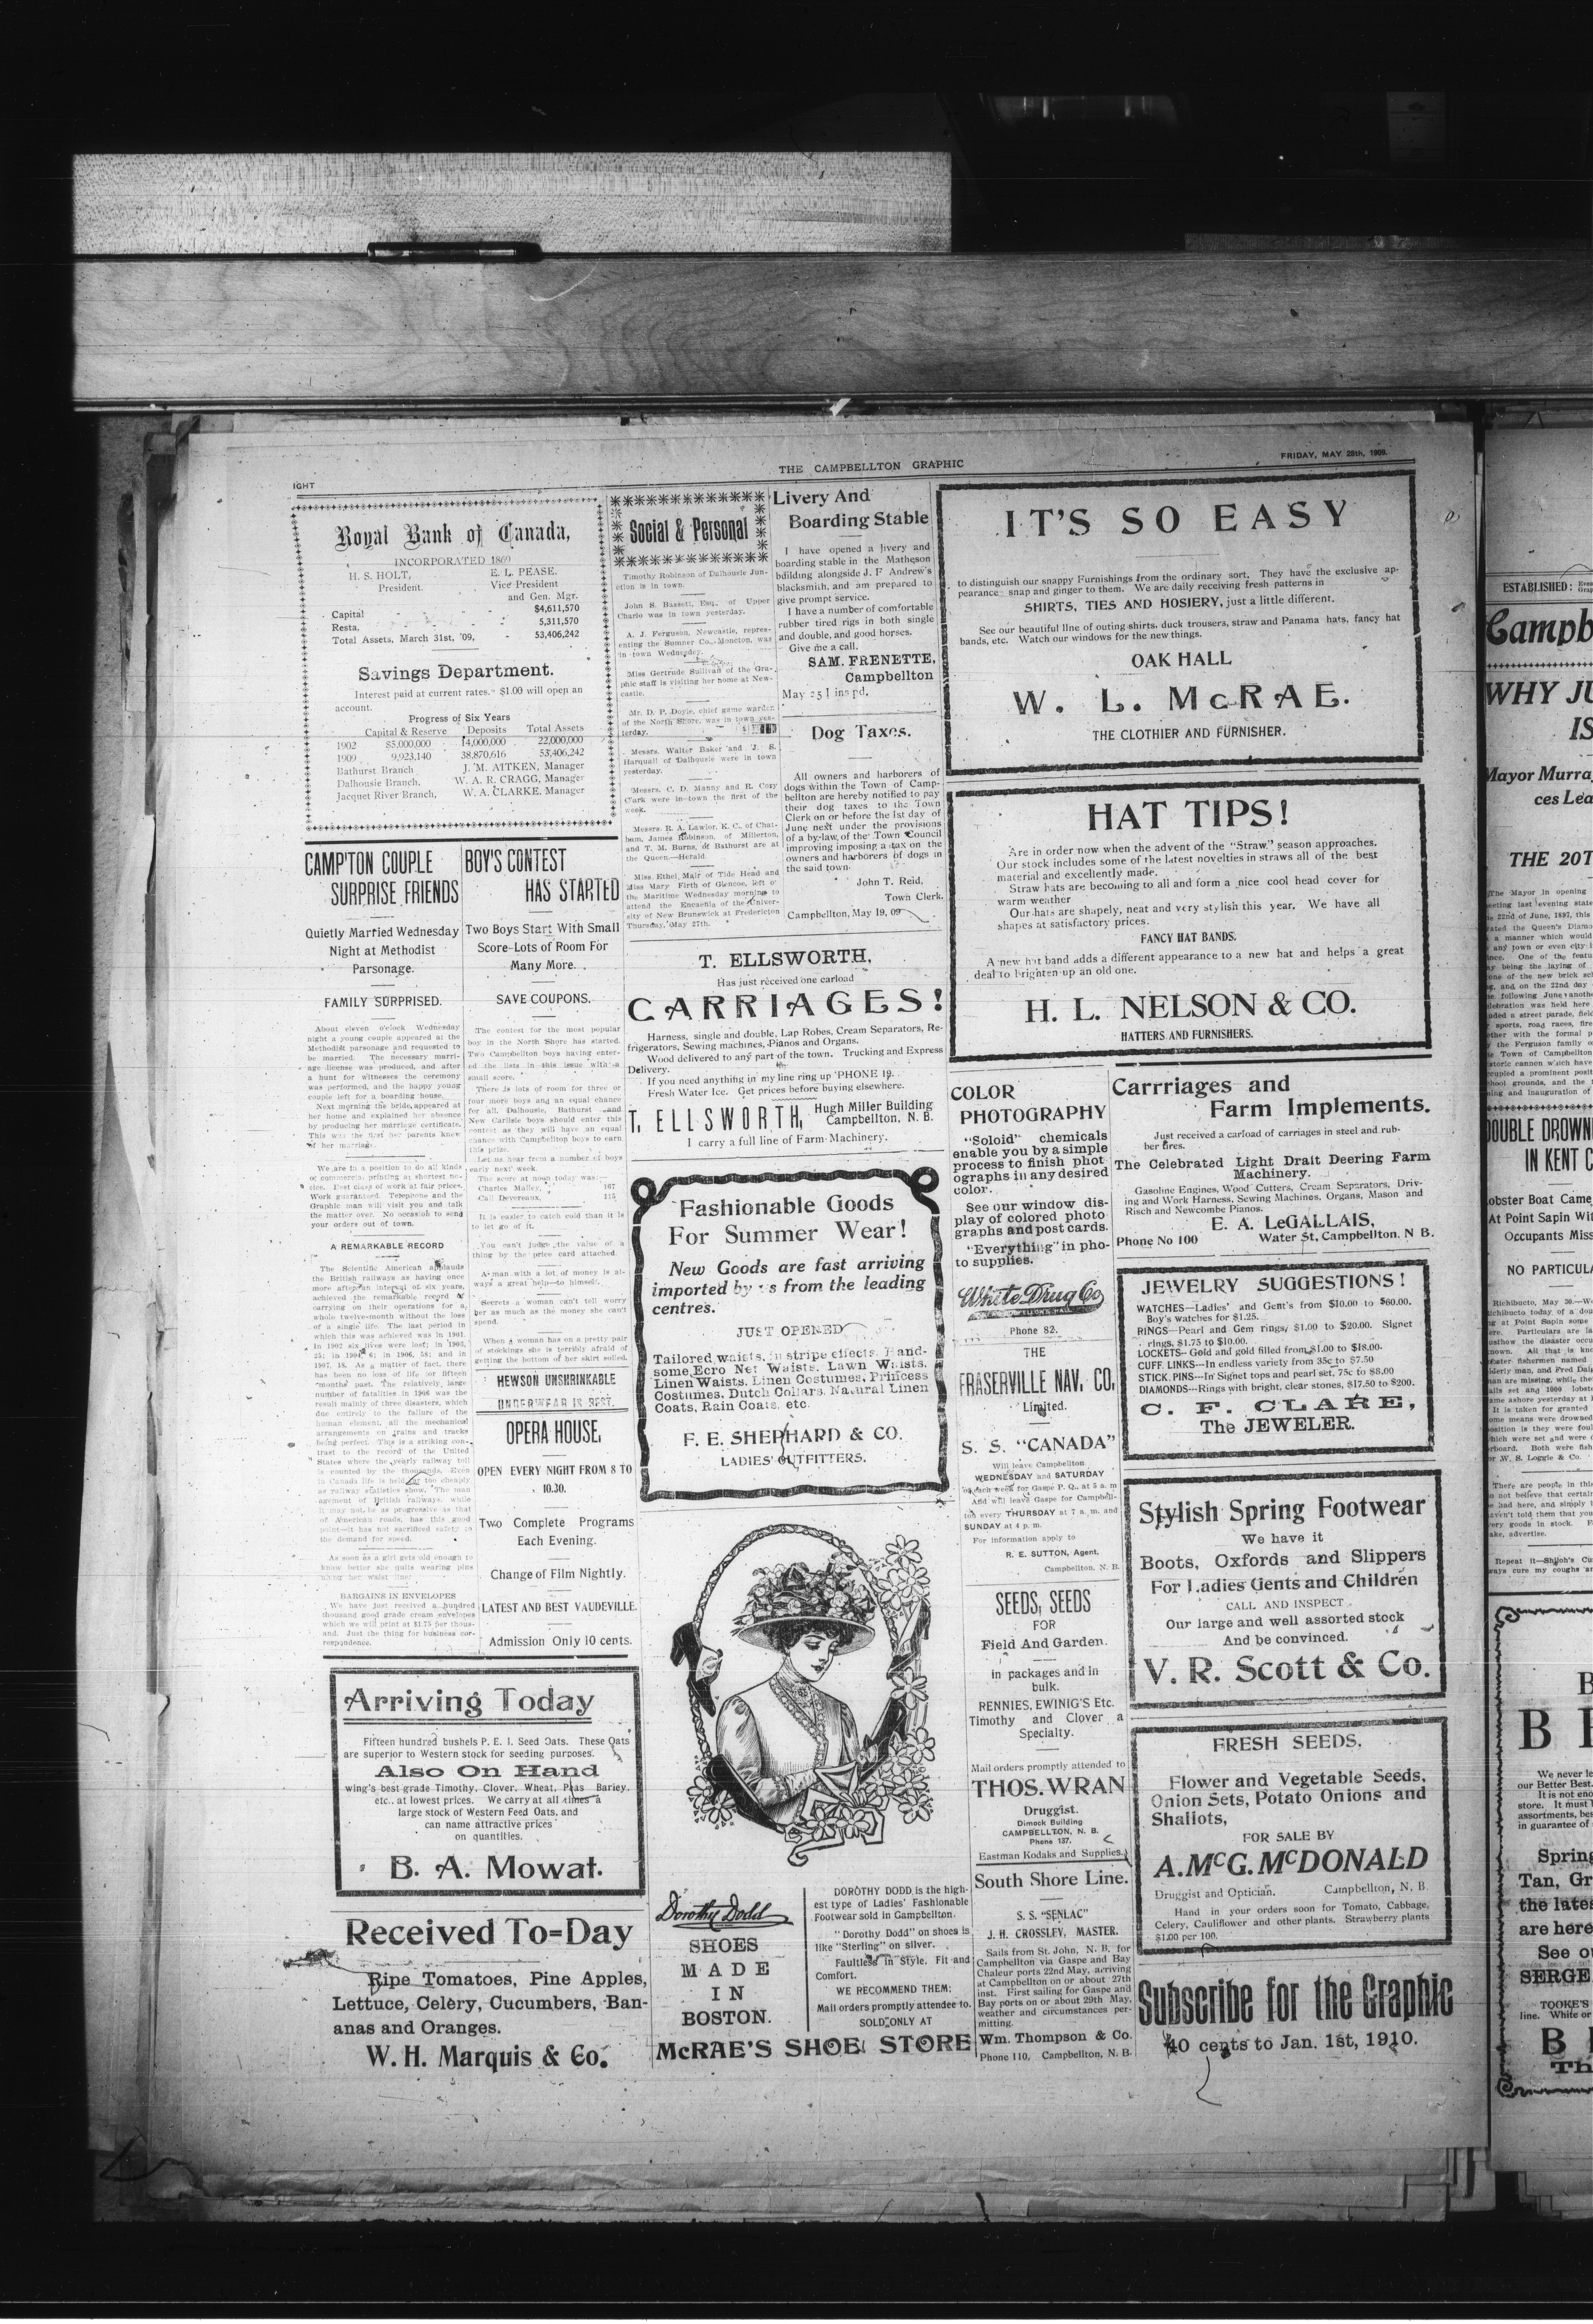 IGHT
THE CAMPBELLTON GRAPHIC
FRIDAY, MAY 28th, 1909.
Royal Bank of Canada,
INCORPORATED 1869
H. S. HOLT,
President.
E. L. PEASE.
Vice President
and Gen. Mgr.
Capital - - $4,611,570
Resta, - 5,311,570
Total Assets, March 31st, '09, - 53,406,242
Savings Department.
Interest paid at current rates. $1.00 will open an
account.
Progress of Six Years
Capital & Reserve Deposits Total Assets
1902 $5,000,000 14,000,000 22,000,000
1909 9,923,140 38,870,616 53,406,242
Bathurst Branch J. M. AITKEN, Manager
Dalhousie Branch, W. A. R. CRAGG, Manager
Jacquet River Branch, W. A. CLARKE. Manager
CAMP'TON COUPLE
SURPRISE FRIENDS
Quietly Married Wednesday
Night at Methodist
Parsonage.
FAMILY SURPRISED.
About eleven o'clock Wednesday
night a young couple appeared at the
Methodist parsonage and requested to
be married. The necessary marri-
age license was produced, and after
a hunt for witnesses the ceremony
was performed, and the happy young
couple left for a boarding house.
Next morning the bride appeared at
her home and explained her absence
by producing her marriage certificate.
This was the first her parents knew
of her marriage.
We are in a position to do all kinds
of commercial printing at shortest no-
tice. Best class of work at fair prices.
Work guaranteed. Telephone and the
Graphic man will visit you and talk
the matter over. No occasion to send
your orders out of town.
A REMARKABLE RECORD
The Scientific American applauds
the British railways as having once
more after an interval of six years,
achieved the remarkable record of
carrying on their operations for a
whole twelve-month without the loss
of a single life. The last period in
which this was achieved was in 1901.
In 1902 six lives were lost; in 1903,
25; in 1904, 6; in 1906, 58; and in
1907, 18. As a matter of fact, there
has been no loss of life for fifteen
months past. The relatively large
number of fatalities in 1906 was the
result mainly of three disasters, which
due entirely to the failure of the
human element, all the mechanical
arrangements on trains and tracks
being perfect. This is a striking con-
trast to the record of the United
States where the yearly railway toll
is counted by the thousands. Even
in Canada life is held far too cheaply
as railway statistics show. The man
agement of British railways, while
it may not be as progressive as that
of American roads, has this good
point—it has not sacrificed safety to
the demand for speed.
As soon as a girl gets old enough to
know better she quits wearing pins
along her waist line.
BARGAINS IN ENVELOPES
We have just received a hundred
thousand good grade cream envelopes
which we will print at $1.75 per thous-
and. Just the thing for business cor-
respondence.
BOY'S CONTEST
HAS STARTED
Two Boys Start With Small
Score-Lots of Room For
Many More.
SAVE COUPONS.
The contest for the most popular
boy in the North Shore has started.
Two Campbellton boys having enter-
ed the lists in this issue with a
small score.
There is lots of room for three or
four more boys and an equal chance
for all. Dalhousie, Bathurst and
New Carlisle boys should enter this
contest as they will have an equal
chance with Campbellton boys to earn
this prize.
Let us hear from a number of boys
early next week.
The score at noon today was:—
Charles Malley, 167
Call Devereaux, 115
It is easier to catch cold than it is
to let go of it.
You can't judge the value of a
thing by the price card attached.
A man with a lot of money is al-
ways a great help—to himself.
Secrets a woman can't tell worry
her as much as the money she can't
spend.
When a woman has on a pretty pair
of stockings she is terribly afraid of
getting the bottom of her skirt soiled.
HEWSON UNSHRINKABLE
UNDERWEAR IS BEST.
OPERA HOUSE,
OPEN EVERY NIGHT FROM 8 TO
10.30.
Two Complete Programs
Each Evening.
Change of Film Nightly.
LATEST AND BEST VAUDEVILLE.
Admission Only 10 cents.
Arriving Today
Fifteen hundred bushels P. E. I. Seed Oats. These Oats
are superior to Western stock for seeding purposes.
Also On Hand
wing's best grade Timothy, Clover, Wheat, Peas Barley,
etc., at lowest prices. We carry at all times a
large stock of Western Feed Oats, and
can name attractive prices
on quantities.
B. A. Mowat.
Received To=Day
Ripe Tomatoes, Pine Apples,
Lettuce, Celery, Cucumbers, Ban-
anas and Oranges.
W. H. Marquis & Co.
Social & Personal
Timothy Robinson of Dalhousie Jun-
ction is in town.
John S. Bassett, Esq., of Upper
Charlo was in town yesterday.
A. J. Ferguson, Newcastle, repres-
enting the Sumner Co., Moncton, was
in town Wednesday.
Miss Gertrude Sullivan of the Gra-
phic staff is visiting her home at New-
castle.
Mr. D. P. Doyle, chief game warden
of the North Shore, was in town yes-
terday.
Messrs. Walter Baker and J. S.
Harquail of Dalhousie were in town
yesterday.
Messrs. C. D. Manny and R. Cory
Clark were in town the first of the
week.
Messrs. R. A. Lawlor, K. C., of Chat-
ham, James Robinson, of Millerton,
and T. M. Burns, of Bathurst are at
the Queen.—Herald.
Miss Ethel Mair of Tide Head and
Miss Mary Firth of Glencoe, left o'
the Maritime Wednesday morning to
attend the Encaenia of the Univer-
sity of New Brunswick at Fredericton
Thursday, May 27th.
Livery And
Boarding Stable
I have opened a livery and
boarding stable in the Matheson
building alongside J. F Andrew's
blacksmith, and am prepared to
give prompt service.
I have a number of comfortable
rubber tired rigs in both single
and double, and good horses.
Give me a call.
SAM. FRENETTE,
Campbellton
May 25 1 ins pd.
Dog Taxes.
All owners and harborers of
dogs within the Town of Camp-
bellton are hereby notified to pay
their dog taxes to the Town
Clerk on or before the 1st day of
June next under the provisions
of a by-law of the Town Council
improving imposing a tax on the
owners and harborers of dogs in
the said town.
John T. Reid,
Town Clerk.
Campbellton, May 19, 09
T. ELLSWORTH,
Has just received one carload
CARRIAGES!
Harness, single and double, Lap Robes, Cream Separators, Re-
frigerators, Sewing machines, Pianos and Organs.
Wood delivered to any part of the town. Trucking and Express
Delivery.
If you need anything in my line ring up 'PHONE 19.
Fresh Water Ice. Get prices before buying elsewhere.
T. ELLSWORTH, Hugh Miller Building
Campbellton, N. B.
I carry a full line of Farm Machinery.
Fashionable Goods
For Summer Wear!
New Goods are fast arriving
imported by us from the leading
centres.
JUST OPENED
Tailored waists, in stripe effects. Hand-
some Ecro Net Waists. Lawn Waists,
Linen Waists. Linen Costumes, Princess
Costumes, Dutch Collars, Natural Linen
Coats, Rain Coats, etc.
F. E. SHEPHARD & CO.
LADIES' OUTFITTERS.
Dorothy Dodd
SHOES
MADE
IN
BOSTON.
DOROTHY DODD is the high-
est type of Ladies' Fashionable
Footwear sold in Campbellton.
"Dorothy Dodd" on shoes is
like "Sterling" on silver.
Faultless in Style, Fit and
Comfort.
WE RECOMMEND THEM:
Mail orders promptly attendee to.
SOLD ONLY AT
McRAE'S SHOE STORE
IT'S SO EASY
to distinguish our snappy Furnishings from the ordinary sort. They have the exclusive ap-
pearance snap and ginger to them. We are daily receiving fresh patterns in
SHIRTS, TIES AND HOSIERY, just a little different.
See our beautiful line of outing shirts, duck trousers, straw and Panama hats, fancy hat
bands, etc. Watch our windows for the new things.
OAK HALL
W. L. McRAE.
THE CLOTHIER AND FURNISHER.
HAT TIPS!
Are in order now when the advent of the "Straw" season approaches.
Our stock includes some of the latest novelties in straws all of the best
material and excellently made.
Straw hats are becoming to all and form a nice cool head cover for
warm weather
Our hats are shapely, neat and very stylish this year. We have all
shapes at satisfactory prices.
FANCY HAT BANDS.
A new hat band adds a different appearance to a new hat and helps a great
deal to brighten up an old one.
H. L. NELSON & CO.
HATTERS AND FURNISHERS.
COLOR
PHOTOGRAPHY
"Soloid" chemicals
enable you by a simple
process to finish phot
ographs in any desired
color.
See our window dis-
play of colored photo
graphs and post cards.
"Everything" in pho-
to supplies.
White Drug Co
Phone 82.
THE
FRASERVILLE NAV. CO.
Limited.
S. S. "CANADA"
Will leave Campbellton
WEDNESDAY and SATURDAY
of each week for Gaspe P. Q., at 5 a. m
And will leave Gaspe for Campbell-
ton every THURSDAY at 7 a. m. and
SUNDAY at 4 p. m.
For information apply to
R. E. SUTTON, Agent,
Campbellton, N. B.
SEEDS, SEEDS
FOR
Field And Garden.
in packages and in
bulk.
RENNIES, EWING'S Etc.
Timothy and Clover a
Specialty.
Mail orders promptly attended to
THOS. WRAN
Druggist.
Dimock Building
CAMPBELLTON, N. B.
Phone 137.
Eastman Kodaks and Supplies.
South Shore Line.
S. S. "SENLAC"
J. H. CROSSLEY, MASTER.
Sails from St. John, N. B. for
Campbellton via Gaspe and Bay
Chaleur ports 22nd May, arriving
at Campbellton on or about 27th
inst. First sailing for Gaspe and
Bay ports on or about 29th May,
weather and circumstances per-
mitting.
Wm. Thompson & Co.
Phone 110, Campbellton, N. B.
Carrriages and
Farm Implements.
Just received a carload of carriages in steel and rub-
ber tires.
The Celebrated Light Drait Deering Farm
Machinery.
Gasoline Engines, Wood Cutters, Cream Separators, Driv-
ing and Work Harness, Sewing Machines, Organs, Mason and
Risch and Newcombe Pianos.
E. A. LeGALLAIS,
Phone No 100 Water St, Campbellton. N B.
JEWELRY SUGGESTIONS!
WATCHES—Ladies' and Gent's from $10.00 to $60.00.
Boy's watches for $1.25.
RINGS—Pearl and Gem rings, $1.00 to $20.00. Signet
rings, $1.75 to $10.00.
LOCKETS—Gold and gold filled from $1.00 to $18.00.
CUFF LINKS—In endless variety from 35c to $7.50
STICK PINS—In Signet tops and pearl set, 75c to $8.00
DIAMONDS—Rings with bright, clear stones, $17.50 to $200.
C. F. CLARE,
The JEWELER.
Stylish Spring Footwear
We have it
Boots, Oxfords and Slippers
For Ladies Gents and Children
CALL AND INSPECT
Our large and well assorted stock
And be convinced.
V. R. Scott & Co.
FRESH SEEDS.
Flower and Vegetable Seeds,
Onion Sets, Potato Onions and
Shallots,
FOR SALE BY
A. McG. McDONALD
Druggist and Optician. Campbellton, N. B.
Hand in your orders soon for Tomato, Cabbage,
Celery, Cauliflower and other plants. Strawberry plants
$1.00 per 100.
Subscribe for the Graphic
40 cents to Jan. 1st, 1910.
ESTABLISHED:
Campb
WHY JU
IS
Mayor Murra
ces Lea
THE 20T
The Mayor in opening
eeting last evening state
e 22nd of June, 1897, this
rated the Queen's Diamo
a manner which would
any town or even city
ince. One of the featu
ay being the laying of
one of the new brick sc
g, and on the 22nd day
e following June anothe
elebration was held here
uded a street parade, field
sports, road races, fire
ther with the formal p
y the Ferguson family o
e Town of Campbellton
storic cannon which have
cupied a prominent posit
hool grounds, and the
ning and inauguration of
DOUBLE DROWNI
IN KENT C
Lobster Boat Came
At Point Sapin Wit
Occupants Miss
NO PARTICULA
Richibucto, May 20.—W
ichibucto today of a dou
g at Point Sapin some
ere. Particulars are la
usthow the disaster occu
nown. All that is kno
obster fishermen named
lderly man, and Fred Dai
an are missing, while the
alls set and 1000 lobst
ame ashore yesterday at
It is taken for granted
ome means were drowned
osition is they were foul
hich were set and were
rboard. Both were fish
or W. S. Loggie & Co.
There are people in this
o not believe that certain
e had here, and simply
aven't told them that you
very goods in stock.
ake, advertise.
Repeat it—Shiloh's Cu
ways cure my coughs an
B
B
We never le
our Better Best.
It is not eno
store. It must
assortments, bes
in guarantee of
Spring
Tan, Gr
the lates
are here
See o
SERGE
TOOKE'S
line. White or
B
Th